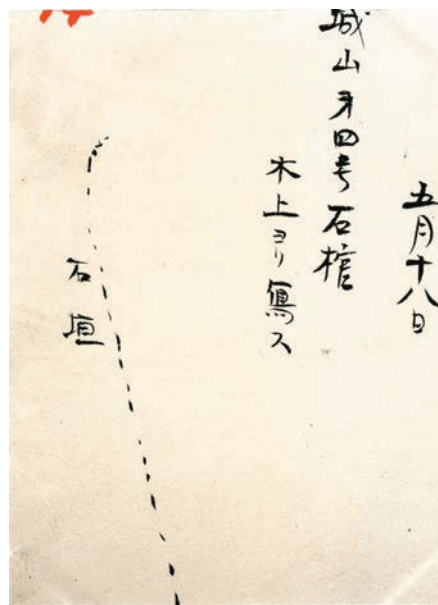 五月十八日
城山才四号石棺
木上ヨリ寫ス
石垣